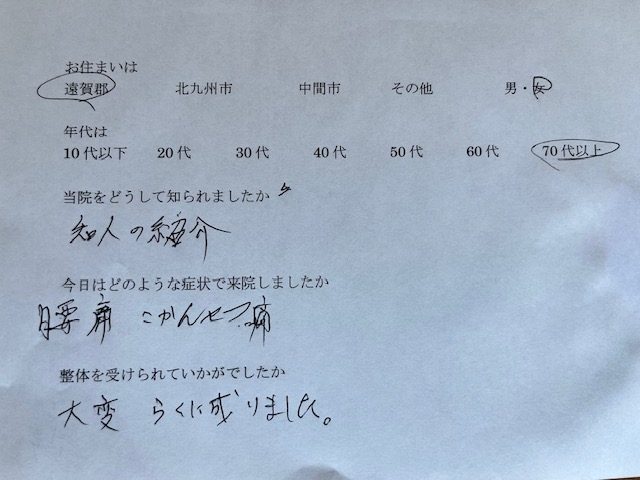 お住まいは
遠賀郡 北九州市 中間市 その他 男・女
年代は
10代以下 20代 30代 40代 50代 60代 70代以上
当院をどうして知られましたか
知人の紹介
今日はどのような症状で来院しましたか
腰痛 こかんせつ痛
整体を受けられていかがでしたか
大変 らくに成りました。